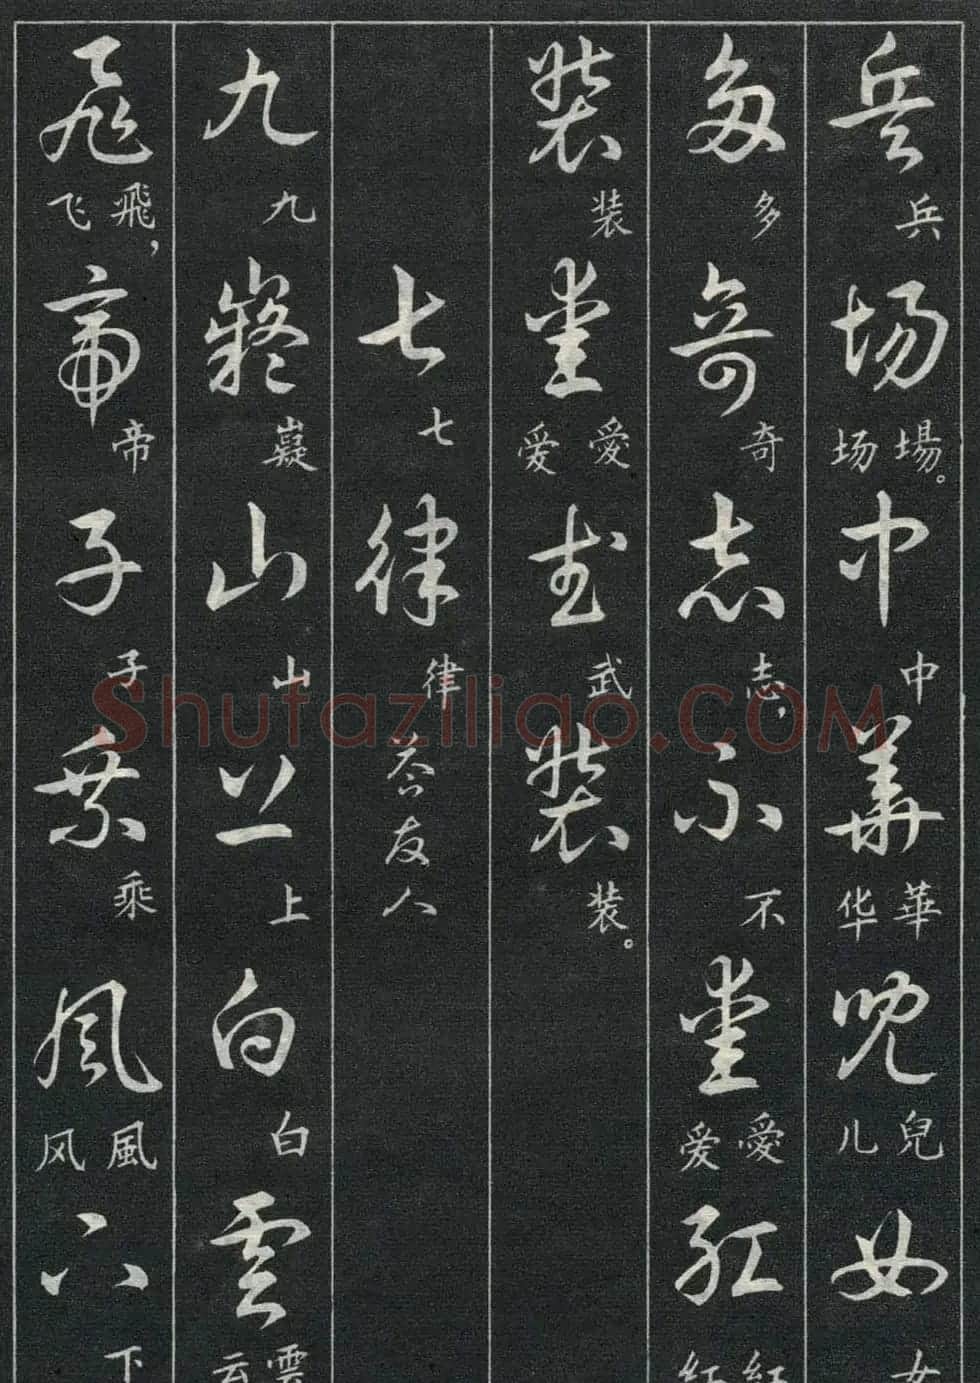 兵 兵 场 場。 场 中 中 華 華 华 兒 兒 儿 女 女
多 多 奇 奇 志 志， 不 不 愛 愛 爱 紅 紅 红
装 装 愛 愛 爱 武 武 装 装。
七 七 律 律 答友人
九 九 嶷 嶷 山 山 上 上 白 白 雲 雲 云
飛 飛， 飞 帝 帝 子 子 乘 乘 風 風 风 下 下
Shufaziliao.COM